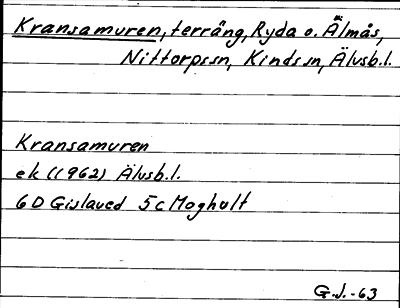 Kransamuren, terräng, Ryda o. Älmås,
Nittorps sn, Kinds sn, Älvsb.l.
Kransamuren
ek (1962) Älvsb.l.
6D Gislaved 5c Moghult
G.J.-63